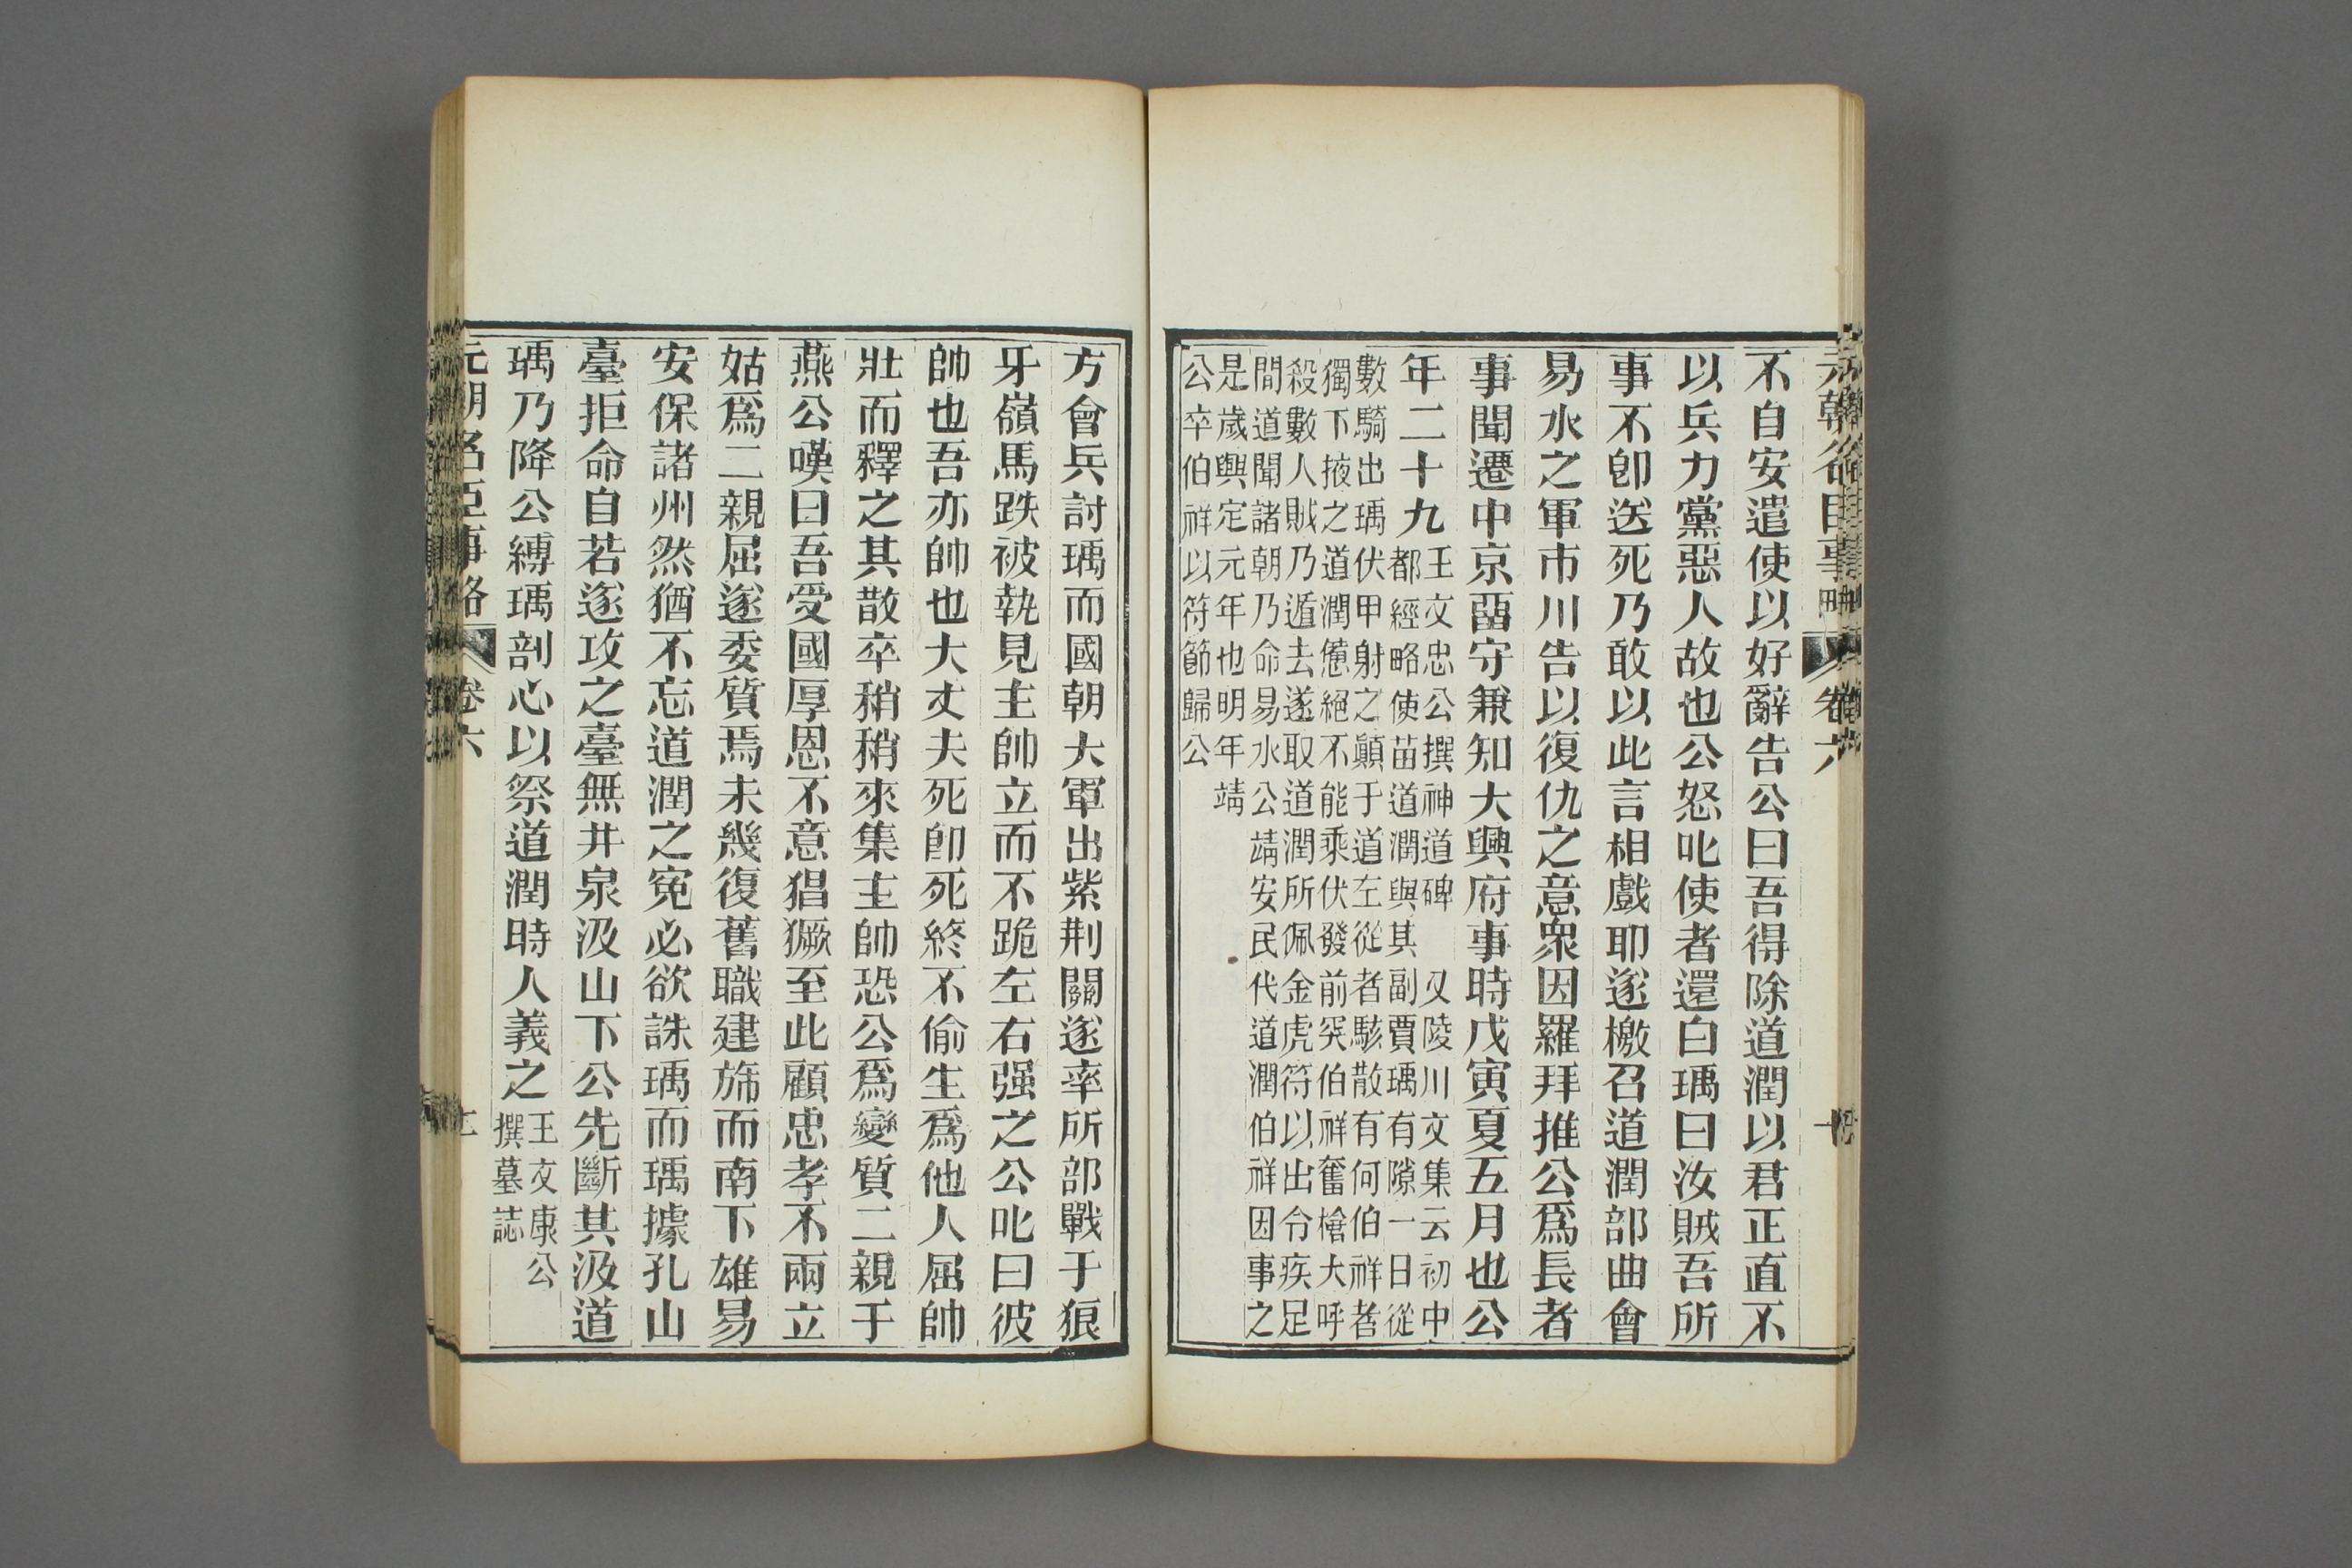 元朝名臣事略 卷六
不自安遣使以好辭告公曰吾得除道潤以君正直不
以兵力黨惡人故也公怒叱使者還白瑀曰汝賊吾所
事不卽送死乃敢以此言相戲耶遂檄召道潤部曲會
易水之軍市川告以復仇之意衆因羅拜推公爲長者
事聞遷中京畱守兼知大興府事時戊寅夏五月也公
年二十九
王文忠公撰神道碑 又陵川文集云初中
都經略使苗道潤與其副賈瑀有隙一日從
數騎出瑀伏甲射之顚于道左從者駭散有何伯祥者
獨下掖之道潤憊絕不能乘伏發前突伯祥奮槍大呼
殺數人賊乃遁去遂取道潤所佩金虎符以出令疾足
間道聞諸朝乃命易水公靖安民代道潤伯祥因事之
是歲興定元年也明年靖
公卒伯祥以符節歸公
方會兵討瑀而國朝大軍出紫荆關遂率所部戰于狼
牙嶺馬跌被執見主帥立而不跪左右强之公叱曰彼
帥也吾亦帥也大丈夫死卽死終不偷生爲他人屈帥
壯而釋之其散卒稍稍來集主帥恐公爲變質二親于
燕公嘆曰吾受國厚恩不意猖獗至此顧忠孝不兩立
姑爲二親屈遂委質焉未幾復舊職建旆而南下雄易
安保諸州然猶不忘道潤之寃必欲誅瑀而瑀據孔山
臺拒命自若遂攻之臺無井泉汲山下公先斷其汲道
瑀乃降公縛瑀剖心以祭道潤時人義之
王文康公
撰墓誌
元朝名臣事略 卷六